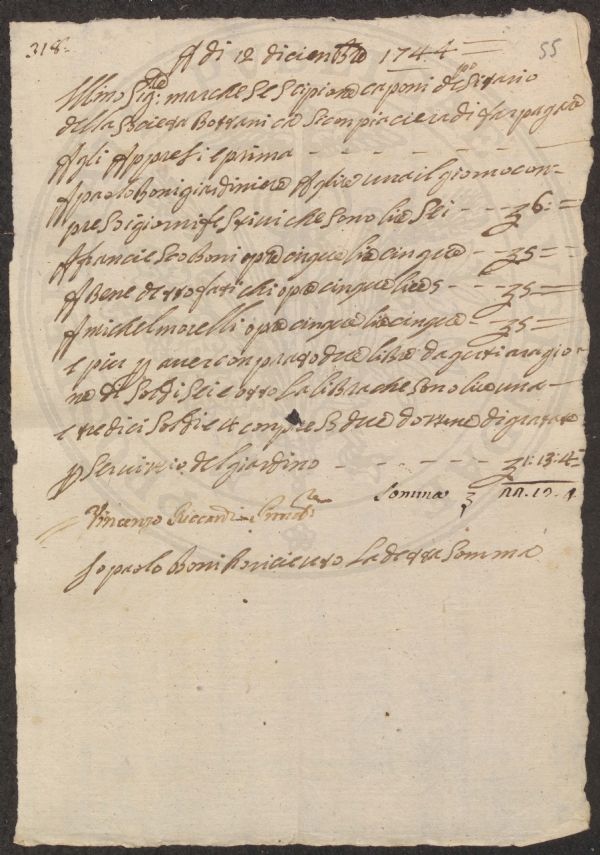 318. A di 12 dicienbre 1744 55
Illmo Sig:re marchese Scipione caponi depositario
della Societa Bottanica Si conpiaciera di far pagare
A gli Appresi e prima
A paolo Boni giardiniere A glire una il giorno con-
preso i giorni festivi che sono lire Sei 6:
A franciesco Boni opre cinque lire cinque 5
A Bene detto fatichi opre cinque lire 5 5
A michel morelli opre cinque lire cinque 5
e piu p aver conprato due libre d aguti a ragio-
ne di Soldi Sei e otto La libra che sono lire una
e tredici Soldi e 4 conpreso due dozzine di
p Servizzio del giardino 1:13:4
Somma 22.13.4
Vincenzo Riccardi
Io paolo Boni O ricievuto La detta Somma